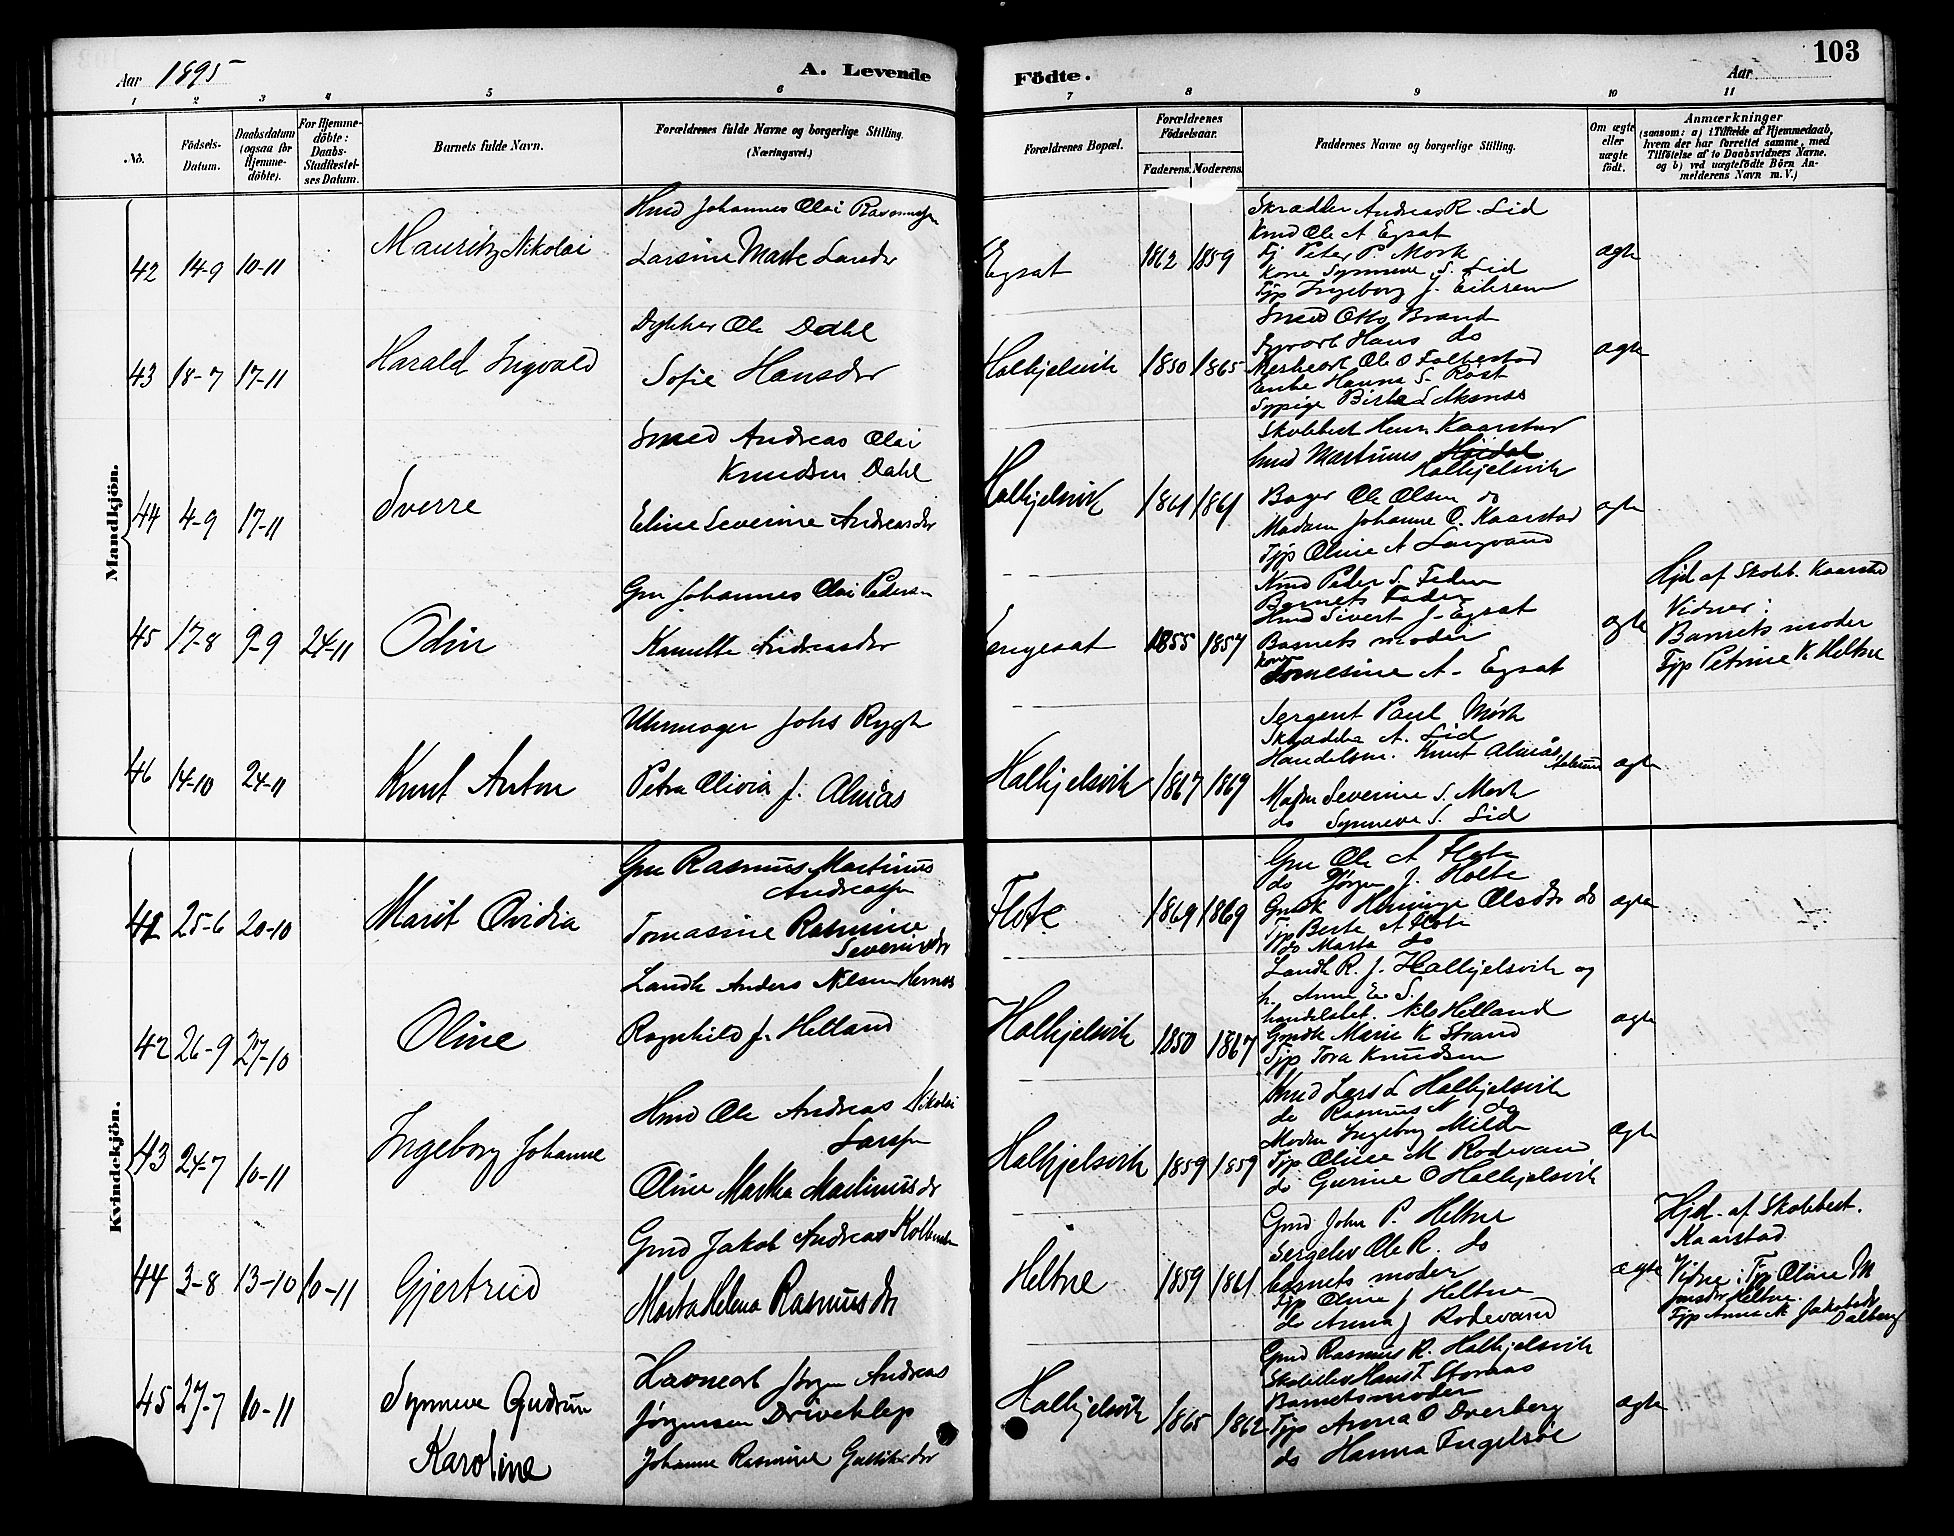 Aar 1895
A. Levende
Födte.
Aar
103
1 2 3 4 5 6 7 8 9 10 11
No.
Födsels-
Datum.
Daabsdatum
(ogsaa for
Hjemme-
döbte).
For Hjemme-
döbte:
Daabs-
Stadfæstel-
ses Datum.
Barnets fulde Navn.
Forældrenes fulde Navne og borgerlige Stilling.
(Næringsvei.)
Forældrenes Bopæl.
Forældrenes
Födselsaar.
Faderens. Moderens.
Faddernes Navne og borgerlige Stilling.
Om ægte
eller
uægte
födt.
Anmærkninger
(saasom: a) i Tilfælde af Hjemmedaab,
hvem der har forrettet samme, med
Tilföielse af to Daabsvidners Navne,
og b) ved uægtefödte Börn An-
melderens Navn m. V.)
Mandkjön.
42 14-9 10-11
Mauritz Nikolai
Hmd Johannes Olai Rasmussen
Larsine Marte Larsdr
Egsat
1862 1859
Skrædder Andreas R. Lid
Kmd Ole A Egsat
Tj Peter P. Mork
Kone Synneve S. Lid
Tjp Ingeborg J. Eiksem
ægte
43 18-7 17-11
Harald Ingvald
Dykker Ole Dahl
Sofie Hansdr
Halkjelsvik
1850 1865
Smed Otto Brandt
Hans do
Ole O Folkestad
Enke Hanna S. Røst
Sypige
ægte
44 4-9 17-11
Sverre
Smed Andreas Olai
Knudsen Dahl
Eline Severine Andreasdr
Halkjelsvik
1861 1861
Skolebest Kaarstad
Martinus
Halkjelsvik
Bager Ole Olsen do
Madam Johanne O. Kaarstad
Tjp Oline A
ægte
45 17-8 9-9 24-11
Odin
Gm Johannes Olai Pedersen
Kamilla Andreasdr
1855 1857
Peder S.
Barnets Fader
Hmd Sivert J. Egsat
Barnets moder
Kone
Tomesine A. Egsat
ægte
Hjd af Skoleb. Kaarstad
Vidner:
Barnets moder
Tjp Petrine K. Heltne
46 14-10 24-11
Knut Anton
Uhrmager Johs Rygh
Petra Olivia J. Almås
Halkjelsvik
1867 1869
Sergent Paul Mørk
Skrædder A. Lid
Handelsm. Knut Almås
Madm Severine S. Mork
do Synneve S. Lid
ægte
Kvindekjön.
41 25-6 20-10
Marit Ovidia
Gm Rasmus Martinus
Andreassen
Tomasine Rasmine
Severinsdr
Flote
1869 1869
Gm Ole A Flote
do Jørgen J. Holte
Olsdtr do
Tjp Berte A Flote
do Marta do
ægte
42 26-9 27-10
Oline
Landh Anders Nilsen
Ragnhild J. Helland
Halkjelsvik
1850 1867
Landh R. J. Halkjelsvik og
h. Anne E. S.
handelsbet. Nils Helland
Marie K Strand
Tjp Tora Knudsen
ægte
43 24-7 10-11
Ingeborg Johanne
Hmd Ole Andreas Nikolai
Larsen
Oline Martha Martinusdr
Halkjelsvik
1859 1859
Hmd Lars L Halkjelsvik
do Rasmus N do
Madm Ingeborg Milde
Tjp Oline M Rodevand
do Gurine O Halkjelsvik
ægte
44 3-8 13-10 10-11
Gjertrud
Gmd Jakob Andreas
Marta Helena Rasmusdr
Heltne
1859 1861
Gmd John P. Heltne
Ole R. do
Barnets moder
Tjp Oline J Heltne
do Anna J Rodevand
ægte
Hjd. af Skolebest.
Kaarstad
Vidne: Tjp Oline M
Jensdr Heltne.
Tjp Anne M Jakobsdr
Dalberg
45 27-7 10-11
Synneve Gudrun
Karoline
Havnearb Jørgen Andreas
Jørgensen Driveklep
Johanne Rasmine
Halkjelsvik
1865 1862
Gmd Rasmus R. Halkjelsvik
Barnets moder
Tjp Anna O Dverberg
do Hanna Engelsøe
ægte